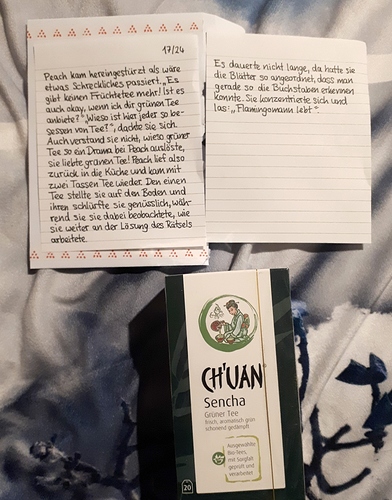 17/24
Peach kam hereingestürzt als wäre
etwas Schreckliches passiert. „Es
gibt keinen Früchtetee mehr! Ist es
auch okay, wenn ich dir grünen Tee
anbiete?" „Wieso ist hier jeder so be-
sessen von Tee?", dachte sie sich.
Auch verstand sie nicht, wieso grüner
Tee so ein Drama bei Peach auslöste,
sie liebte grünen Tee! Peach lief also
zurück in die Küche und kam mit
zwei Tassen Tee wieder. Den einen
Tee stellte sie auf den Boden und
ihren schlürfte sie genüsslich, wäh-
rend sie sie dabei beobachtete, wie
sie weiter an der Lösung des Rätsels
arbeitete.
Es dauerte nicht lange, da hatte sie
die Blätter so angeordnet, dass man
gerade so die Buchstaben erkennen
konnte. Sie konzentrierte sich und
las: „Flamingomann lebt".
CH'UAN
Sencha
Grüner Tee
frisch, aromatisch grün
schonend gedämpft
Ausgewählte
Bio-Tees,
mit Sorgfalt
geprüft und
verarbeitet
20